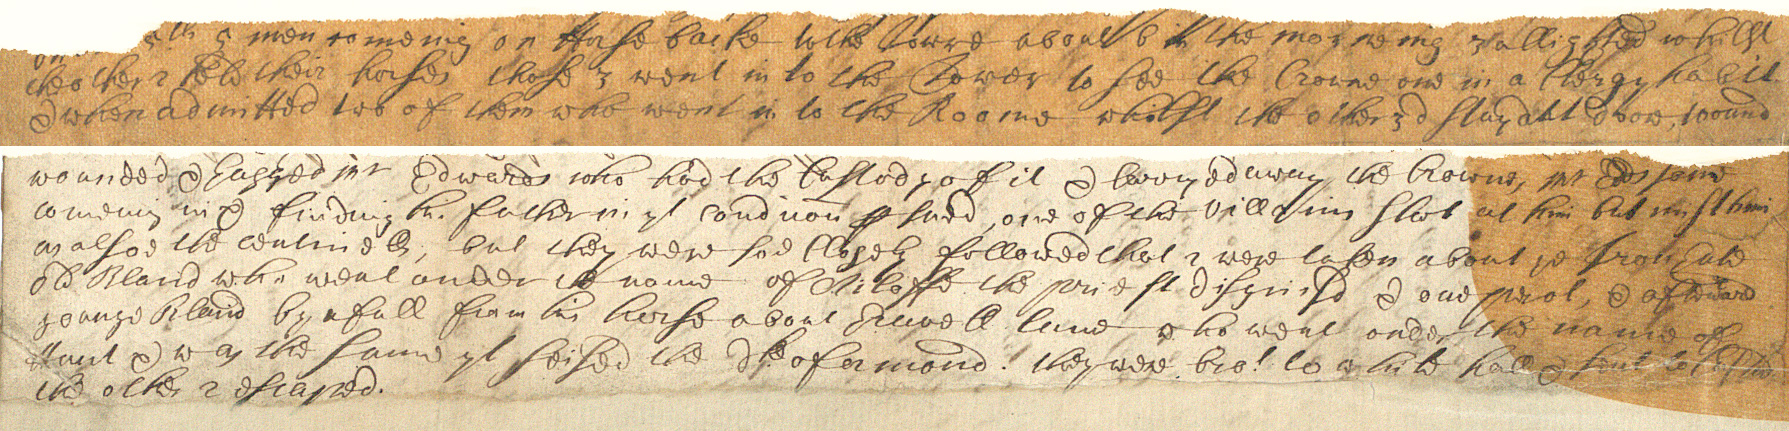 5th 5 men comeing on Horse backe to the Towre about 6 in the morneing 3 allighted whilst
the other 2 held their horses those 3 went in to the Tower to see the Crowne one in a Clergy habit
& when admitted two of them who went in to the Roome whilst the other 3d stayd att doore, wound
wounded & gagged mr Edwards who had the Custody of it & carryed away the Crowne, mr Eds sone
comeing in & finding his father in yt condition p'sued, one of the Villains shot at him but mist him
as alsoe the centinells, but they were soe closely followed that 2 were taken about ye Iron Gate
old Bland who went under the name of Ailoffe the priest disguisd & one perot, & afterward
younge Bland by a fall from his horse about Gravell lane who went under the name of
Hunt & was the same yt seised the Dke of ormond. they were brot to white hall &
the other 2 escaped.